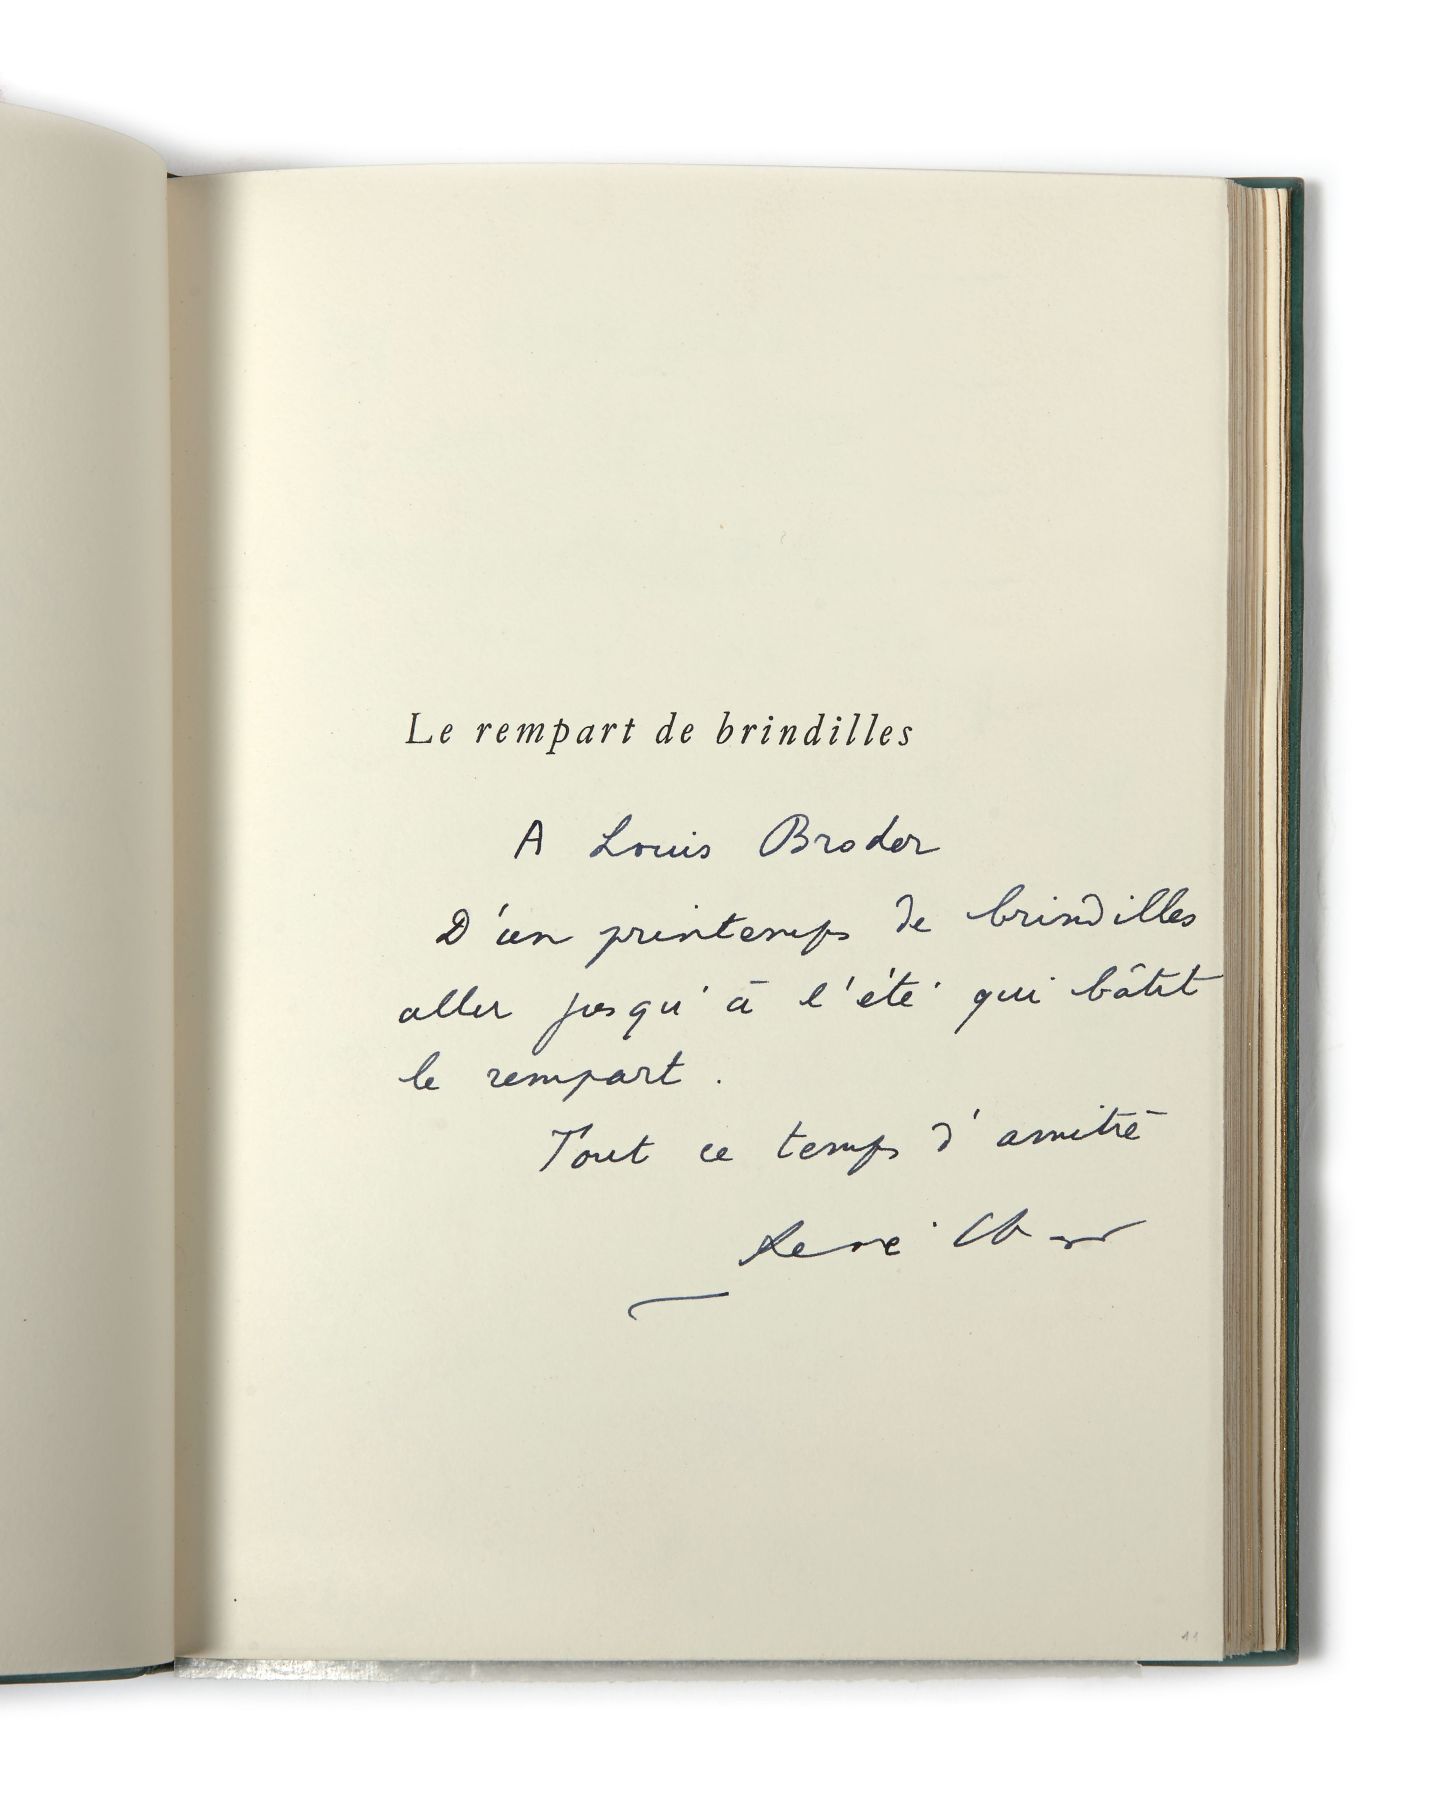 Le rempart de brindilles
A Louis Broder
D'un printemps de brindilles
aller jusqu'à l'été qui bâtit
le rempart.
Tout ce temps d'amitié
René Char
11